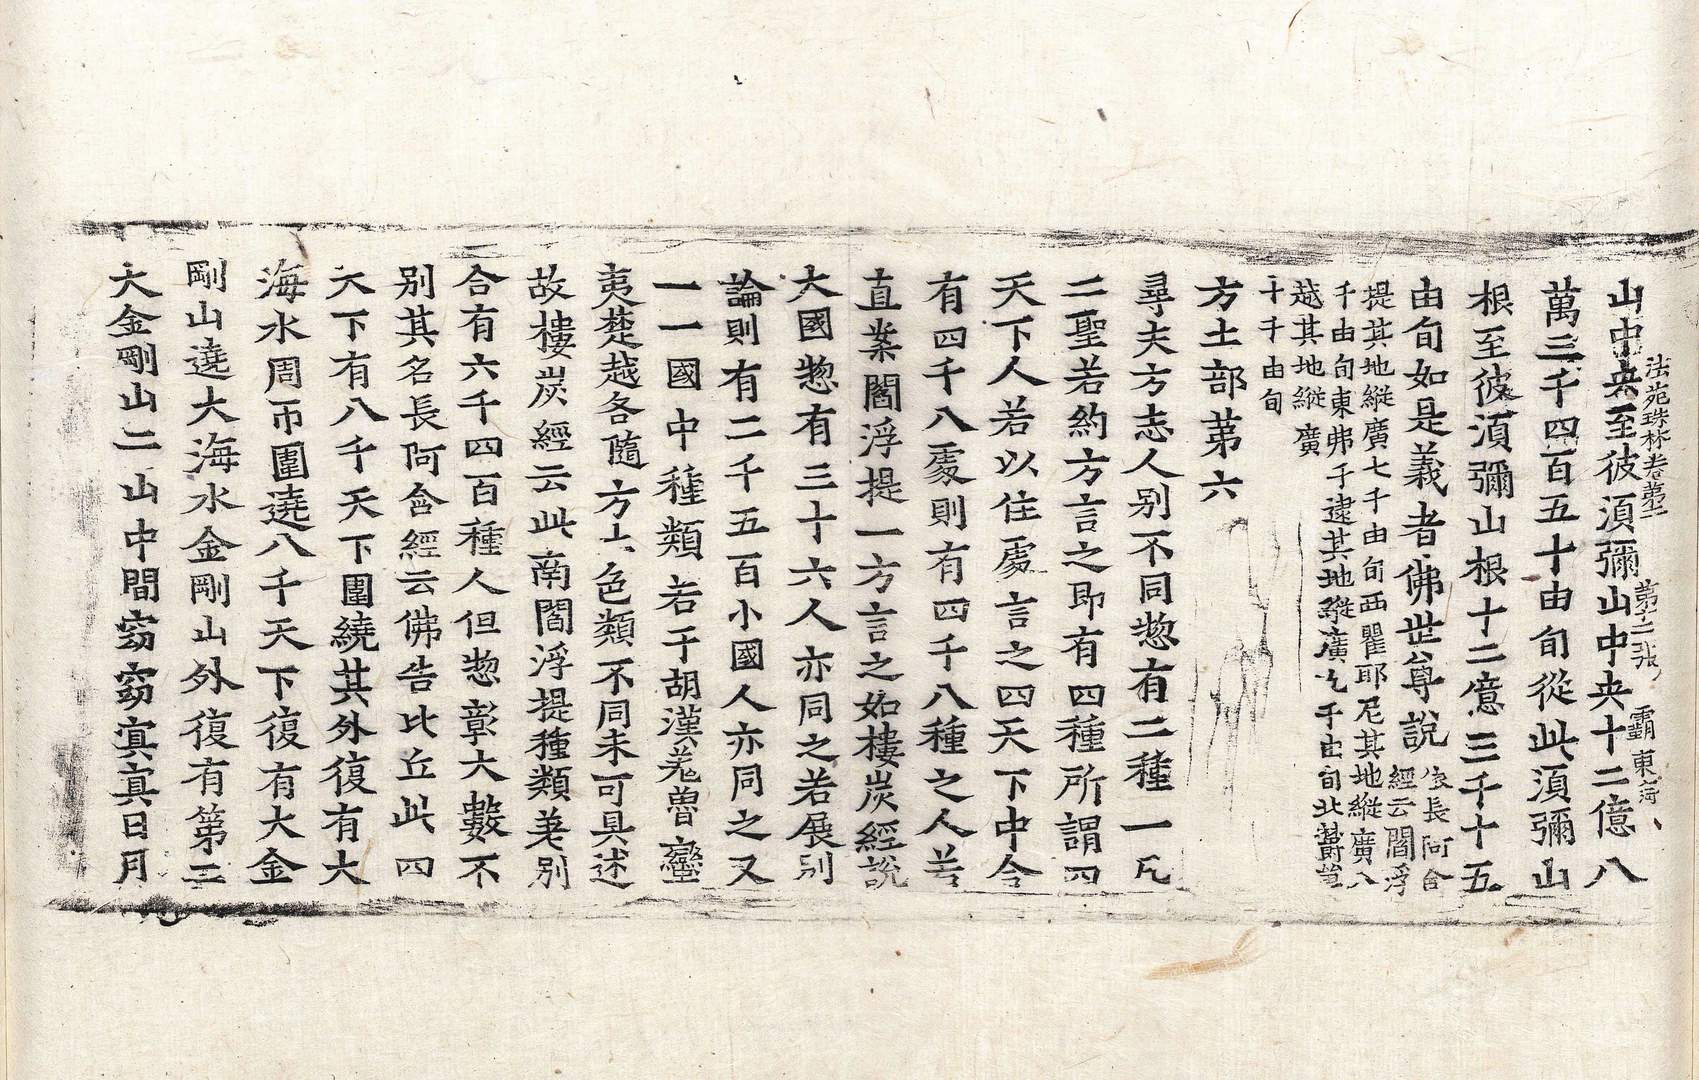 法苑珠林卷第二 第十二張 霸 東海
山中央至彼須彌山中央十二億八
萬三千四百五十由旬從此須彌山
根至彼須彌山根十二億三千十五
由旬如是義者佛世尊說
依長阿含
經云閻浮
提其地縱廣七千由旬西瞿耶尼其地縱廣八
千由旬東弗于逮其地縱廣九千由旬北欝單
越其地縱廣
十千由旬
方土部第六
尋夫方志人别不同惣有二種一凡
二聖若約方言之即有四種所謂四
天下人若以住處言之四天下中合
有四千八處則有四千八種之人若
直案閻浮提一方言之如樓炭經說
大國惣有三十六人亦同之若展别
論則有二千五百小國人亦同之又
一一國中種類若干胡漢羌虜蠻
夷楚越各隨方土色類不同未可具述
故樓炭經云此南閻浮提種類差别
合有六千四百種人但惣彰大數不
别其名長阿含經云佛告比丘此四
天下有八千天下圍繞其外復有大
海水周帀圍遶八千天下復有大金
剛山遶大海水金剛山外復有第二
大金剛山二山中間窈窈寘寘日月